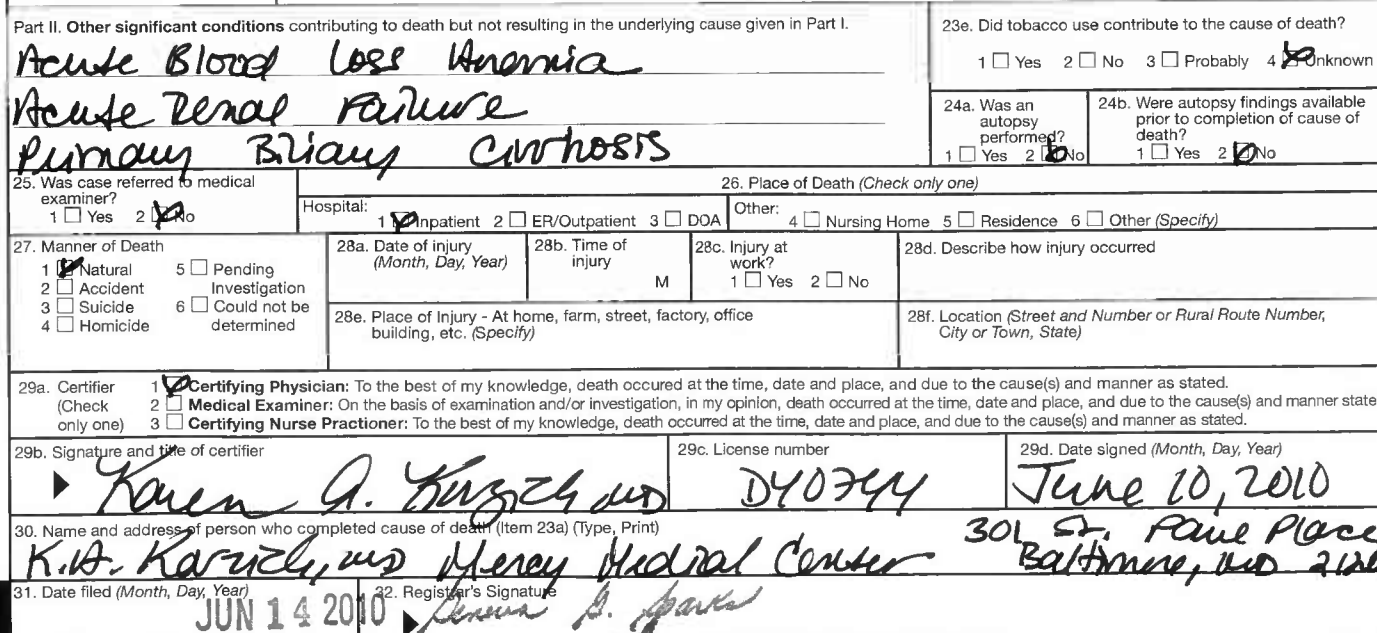 Part II. Other significant conditions contributing to death but not resulting in the underlying cause given in Part I.
Acute Blood Loss Anemia
Acute Renal Failure
Primary Biliary Cirrhosis
23e. Did tobacco use contribute to the cause of death?
1 ☐ Yes 2 ☐ No 3 ☐ Probably 4 ☒ Unknown
24a. Was an
autopsy
performed?
1 ☐ Yes 2 ☒ No
24b. Were autopsy findings available
prior to completion of cause of
death?
1 ☐ Yes 2 ☒ No
25. Was case referred to medical
examiner?
1 ☐ Yes 2 ☒ No
26. Place of Death (Check only one)
Hospital:
1 ☒ Inpatient 2 ☐ ER/Outpatient 3 ☐ DOA
Other:
4 ☐ Nursing Home 5 ☐ Residence 6 ☐ Other (Specify)
27. Manner of Death
1 ☒ Natural 5 ☐ Pending
2 ☐ Accident Investigation
3 ☐ Suicide 6 ☐ Could not be
4 ☐ Homicide determined
28a. Date of injury
(Month, Day, Year)
28b. Time of
injury
M
28c. Injury at
work?
1 ☐ Yes 2 ☐ No
28d. Describe how injury occurred
28e. Place of Injury - At home, farm, street, factory, office
building, etc. (Specify)
28f. Location (Street and Number or Rural Route Number,
City or Town, State)
29a. Certifier
(Check
only one)
1 ☒ Certifying Physician: To the best of my knowledge, death occured at the time, date and place, and due to the cause(s) and manner as stated.
2 ☐ Medical Examiner: On the basis of examination and/or investigation, in my opinion, death occurred at the time, date and place, and due to the cause(s) and manner state
3 ☐ Certifying Nurse Practioner: To the best of my knowledge, death occurred at the time, date and place, and due to the cause(s) and manner as stated.
29b. Signature and title of certifier
Karen A. MD
29c. License number
D40744
29d. Date signed (Month, Day, Year)
June 10, 2010
30. Name and address of person who completed cause of death (Item 23a) (Type, Print)
K.A. MD Mercy Medical Center
301 St. Paul Place
Baltimore, MD
31. Date filed (Month, Day, Year)
JUN 14 2010
32. Registrar's Signature
Sparks